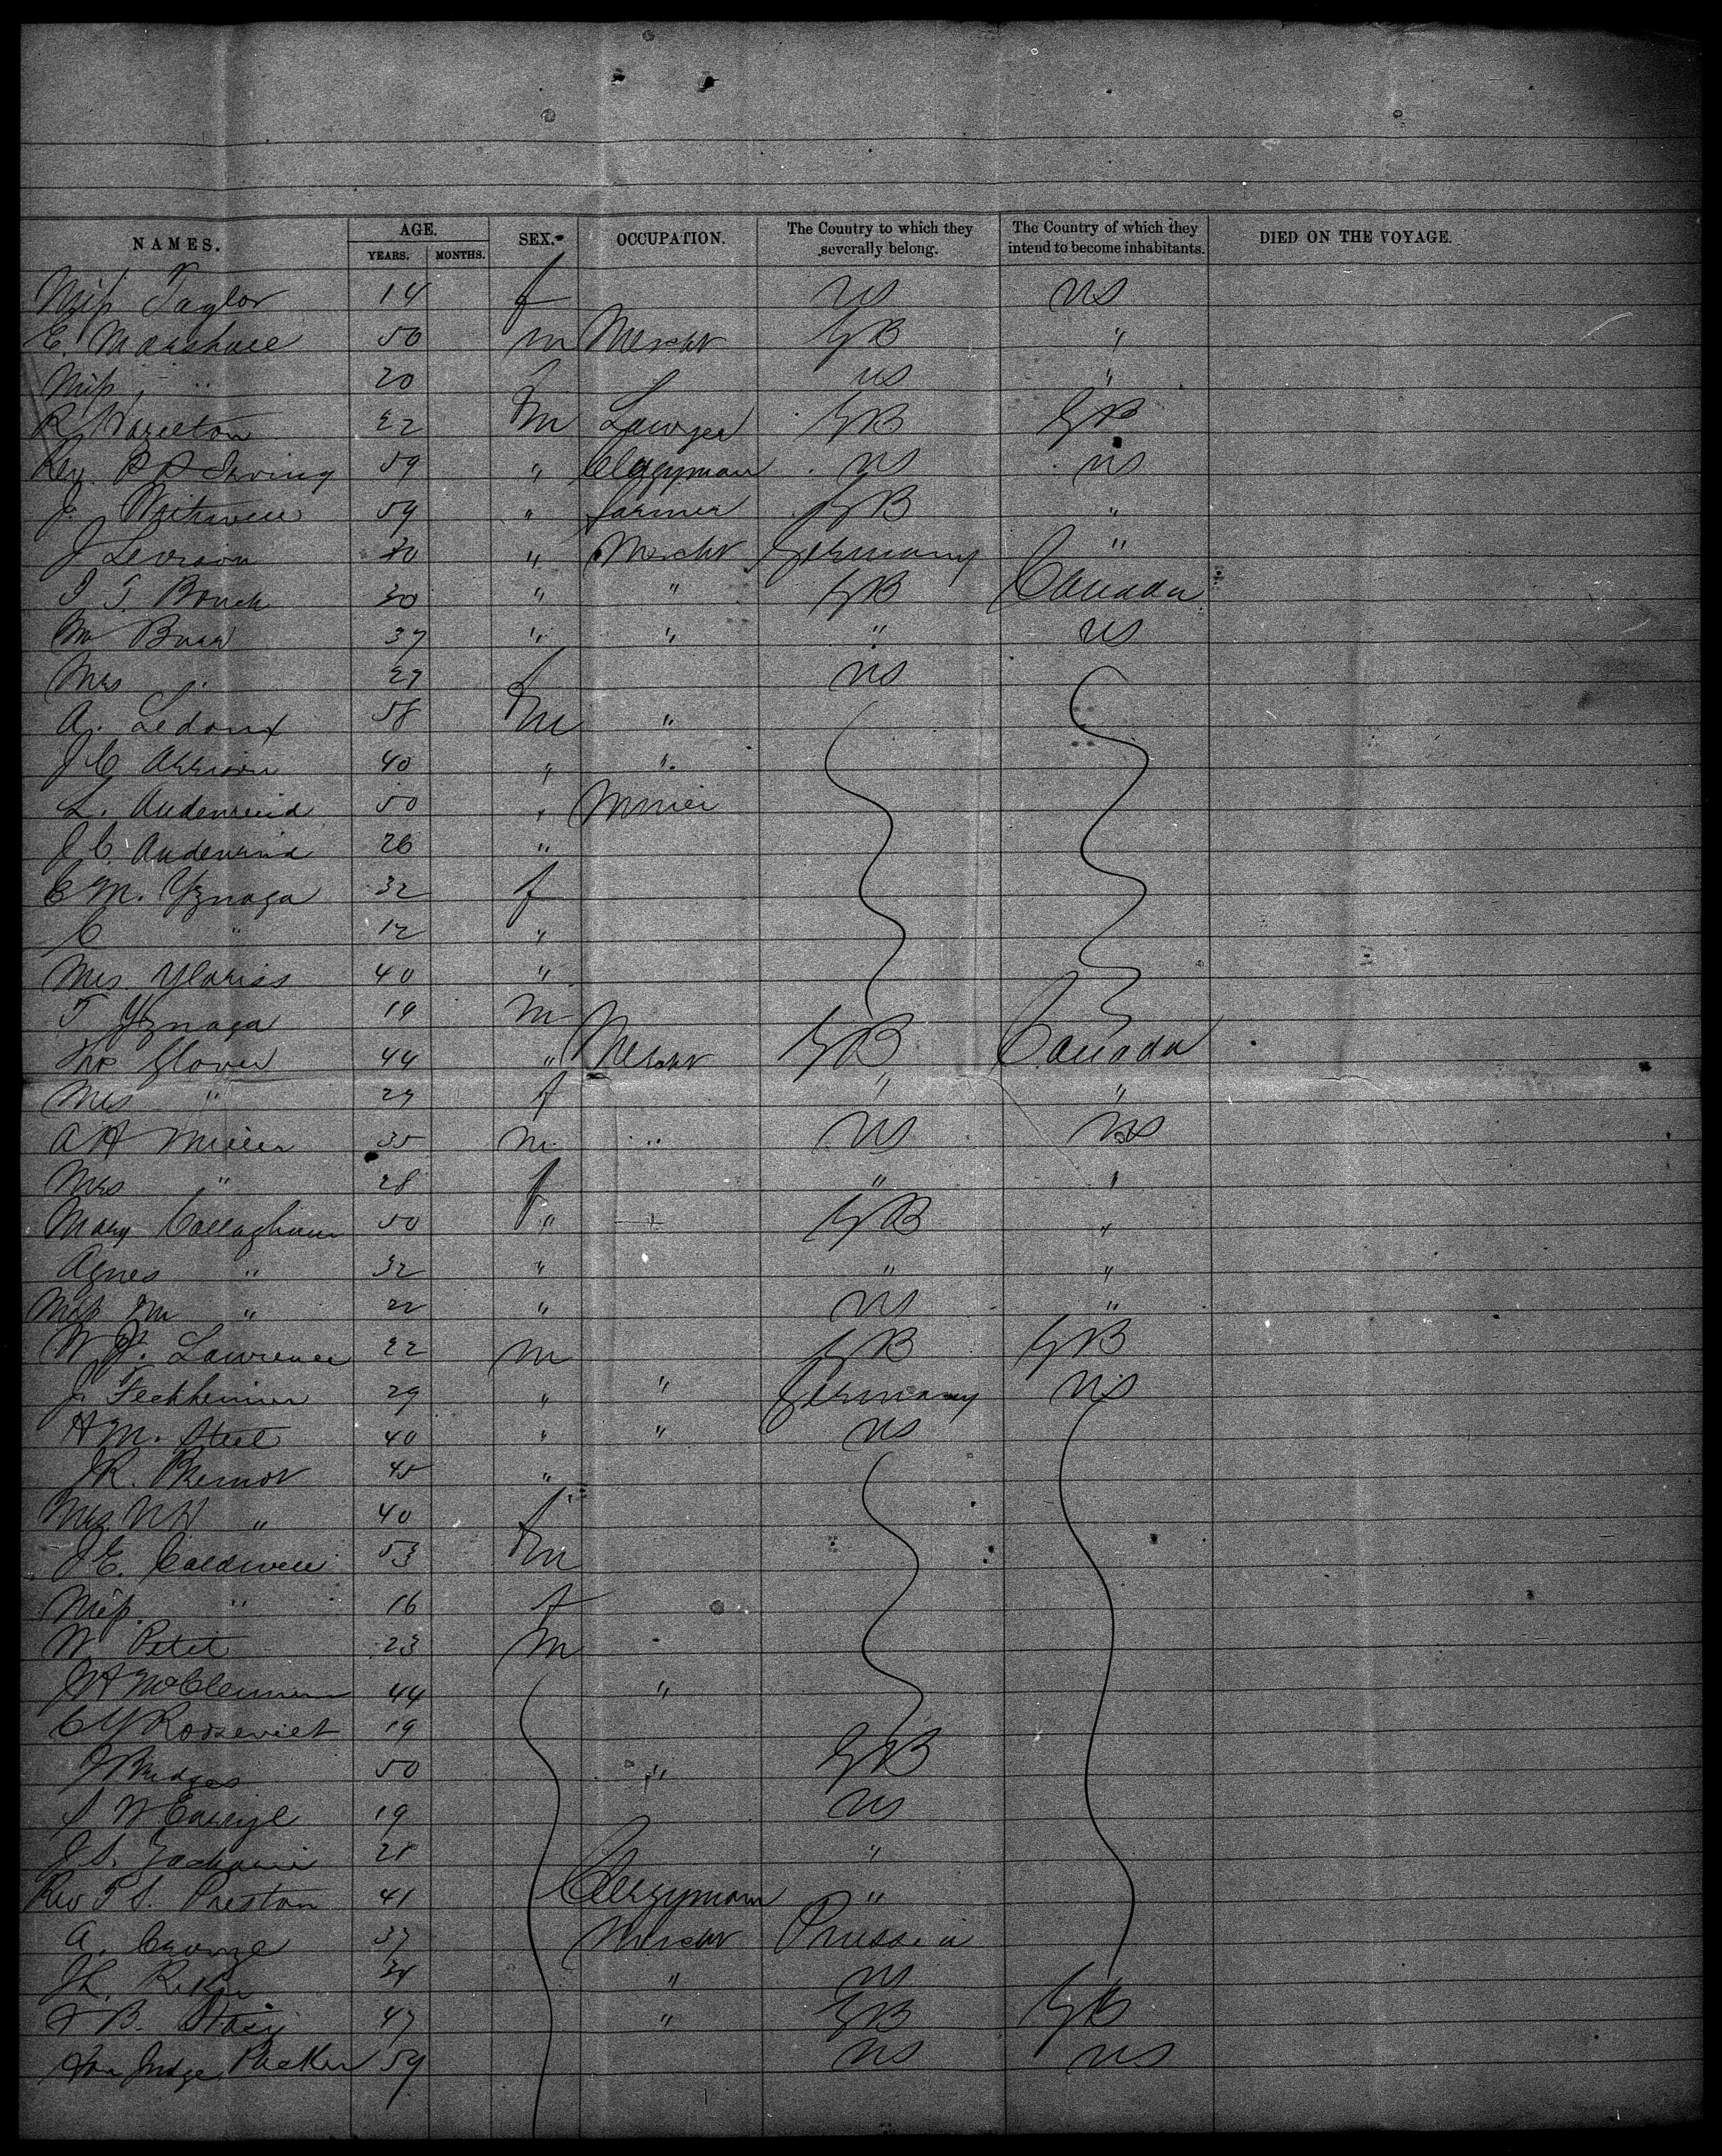 NAMES. AGE. SEX. OCCUPATION. The Country to which they severally belong. The Country of which they intend to become inhabitants. DIED ON THE VOYAGE.
YEARS. MONTHS.
Miss Taylor 14 f US US
E. Marshall 50 m Mercht GB "
Miss " 20 f US "
R. Hazelton 22 m Lawyer GB GB
Rev. Irving 59 " Clergyman US US
J. 59 " farmer GB "
J Levison 30 " Mercht Germany "
J T. Bouch 30 " " GB Canada
Mr 37 " " " US
Mrs " 27 f US
A. Ledoux 58 m "
J C 40 " "
L. Audenreid 50 " Miner
J C. Audenrind 26 "
C M. Yznaga 32 f
C " 12 "
Mrs 40 "
T Yznaga 19 m
Thos Glover 44 " Mercht GB Canada
Mrs " 29 f " "
A H Miller 35 m " US US
Mrs " 28 f " "
Mary Callaghan 50 " GB "
Agnes " 32 " " "
Miss " 22 " US "
W. Lawrence 22 m GB GB
J. Fechheimer 29 " " Germany US
H M. Steel 40 " " US
J R. 45 "
Mrs N H " 40 f
J E. Caldwell 53 m
Miss " 16 f
W Petit 23 m
McClennen 44 "
C Y Roosevelt 19
J Bridges 50 " GB
19 US
J S. 28 "
Rev T S. Preston 41 Clergyman "
A. George 37 Mercht Prussia
J L. 34 " US
B. Stacy 47 " GB GB
Hon Judge Packer 59 US US